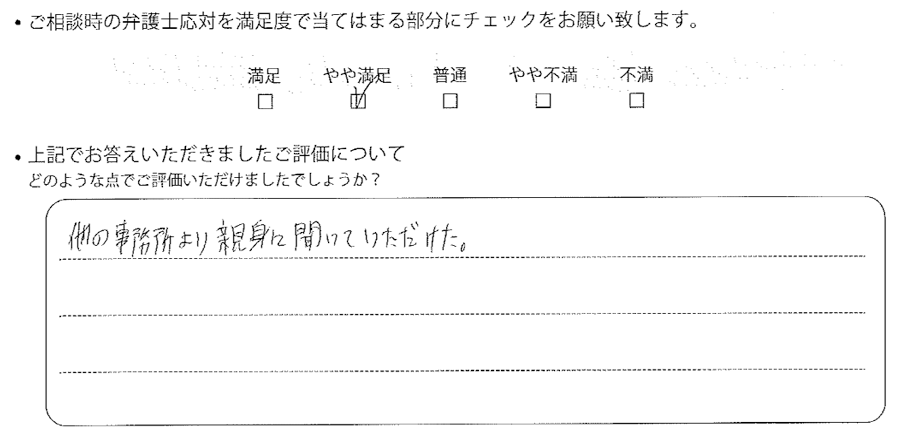 ・ご相談時の弁護士応対を満足度で当てはまる部分にチェックをお願い致します。
満足 やや満足 普通 やや不満 不満
□ ☑ □ □ □
・上記でお答えいただきましたご評価について
どのような点でご評価いただけましたでしょうか？
他の事務所より親身に聞いていただけた。